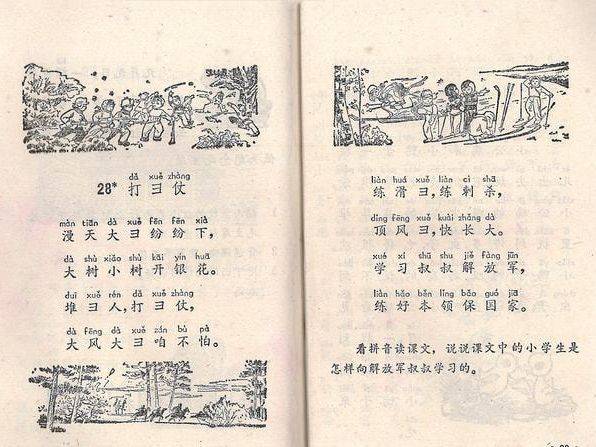 dǎ xuě zhàng
28* 打彐仗
màn tiān dà xuě fēn fēn xià
漫天大彐纷纷下，
dà shù xiǎo shù kāi yín huā
大树小树开银花。
duī xuě rén dǎ xuě zhàng
堆彐人，打彐仗，
dà fēng dà xuě zán bù pà
大风大彐咱不怕。
liàn huá xuě liàn cì shā
练滑彐，练刺杀，
dǐng fēng xuě kuài zhǎng dà
顶风彐，快长大。
xué xí shū shu jiě fàng jūn
学习叔叔解放军，
liàn hǎo běn lǐng bǎo guó jiā
练好本领保国家。
看拼音读课文，说说课文中的小学生是
怎样向解放军叔叔学习的。